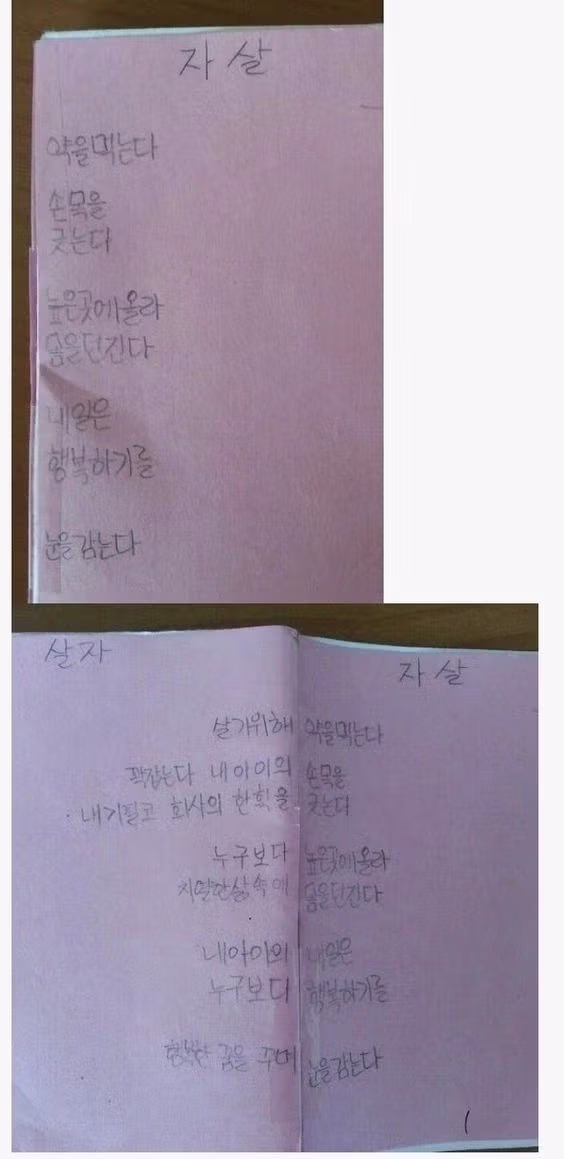 자살
약을먹는다
손목을
긋는다
높은곳에올라
몸을던진다
내일은
행복하기를
눈을감는다
살자 자살
살기위해 약을먹는다
꽉잡는다 내아이의 손목을
내기필코 회사의 한획을 긋는다
누구보다 높은곳에올라
치열한삶속에 몸을던진다
내아이의 내일은
누구보다 행복하기를
행복한 꿈을 꾸며 눈을감는다